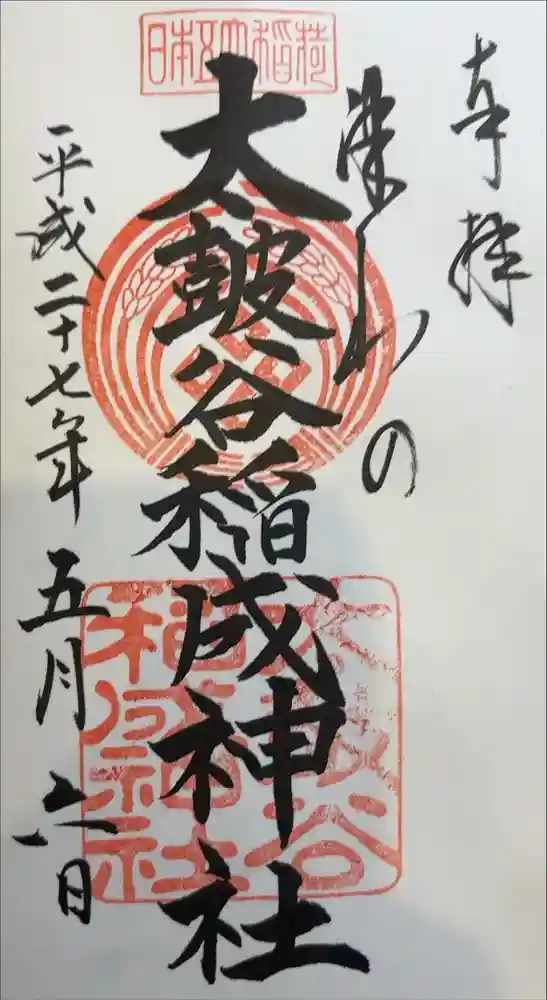 奉拝
津わの
日本五大稲荷
太皷谷稲成神社
太皷谷
稲成神社
平成二十七年五月六日